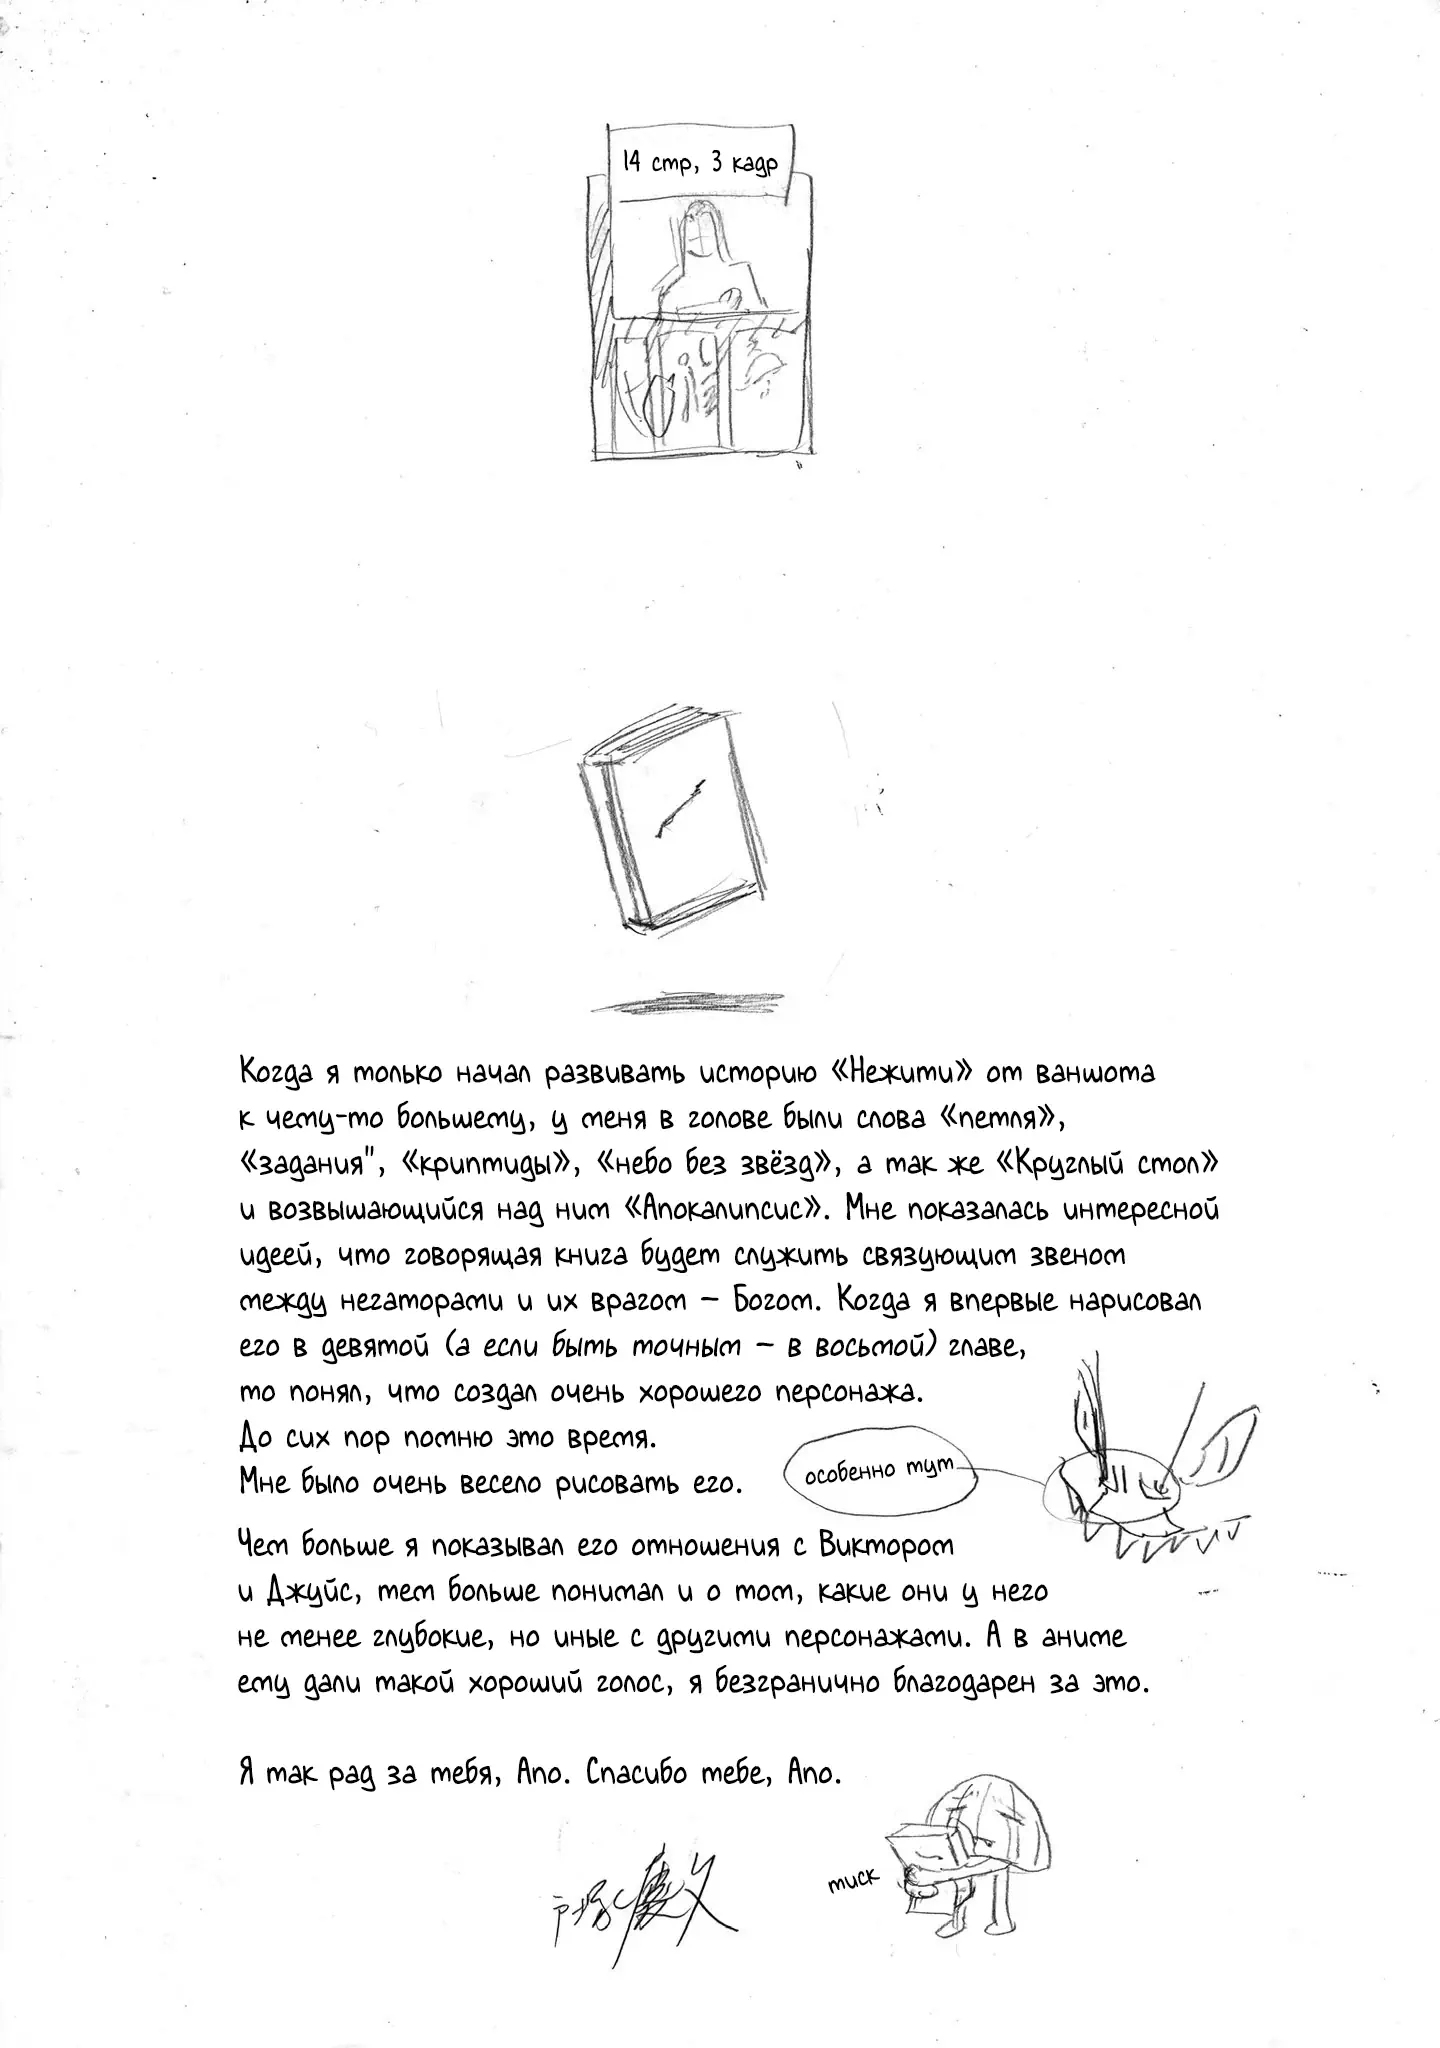 14 стр, 3 кадр
Когда я только начал развивать историю «Нежити» от ваншота
к чему-то большему, у меня в голове были слова «петля»,
«задания", «криптиды», «небо без звёзд», а так же «Круглый стол»
и возвышающийся над ним «Апокалипсис». Мне показалась интересной
идеей, что говорящая книга будет служить связующим звеном
между негаторами и их врагом – Богом. Когда я впервые нарисовал
его в девятой (а если быть точным – в восьмой) главе,
то понял, что создал очень хорошего персонажа.
До сих пор помню это время.
Мне было очень весело рисовать его.
особенно тут
Чем больше я показывал его отношения с Виктором
и Джуйс, тем больше понимал и о том, какие они у него
не менее глубокие, но иные с другими персонажами. А в аниме
ему дали такой хороший голос, я безгранично благодарен за это.
Я так рад за тебя, Апо. Спасибо тебе, Апо.
тиск